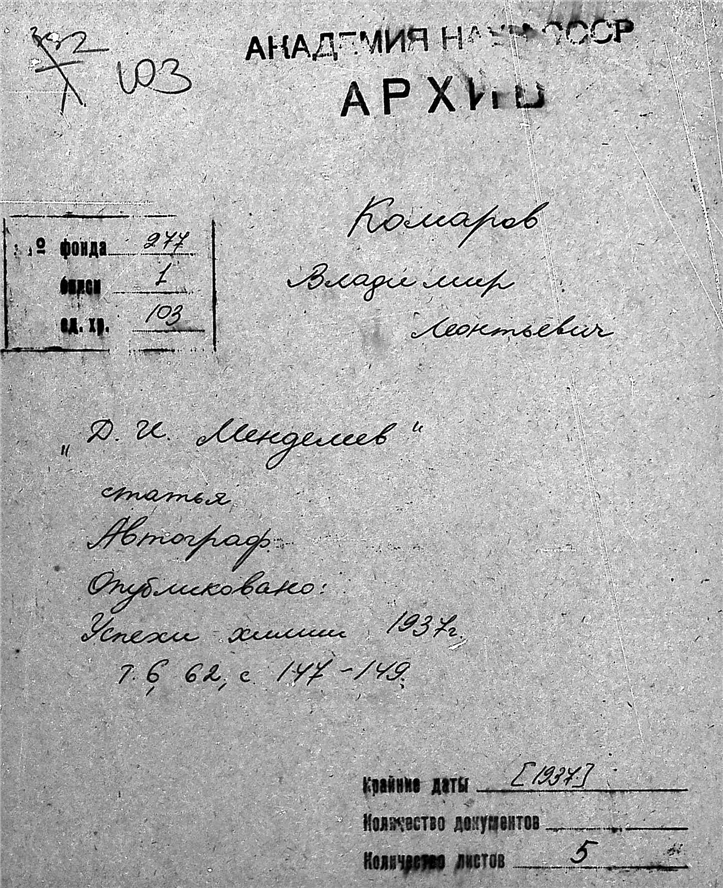 392
1
103
АКАДЕМИЯ НАУК СССР
АРХИВ
№ фонда 277
описи 1
ед. хр. 103
Комаров
Владимир
Леонтьевич
„Д. И. Менделеев"
статья
Автограф
Опубликовано:
Успехи химии 1937г.
т. 6, 62, с. 147-149.
Крайние даты [1937]
Количество документов
Количество листов 5